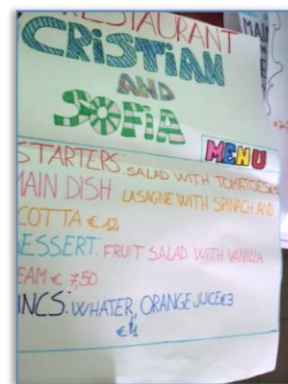 RESTAURANT
CRISTIAN
AND
SOFIA
MENU
STARTERS: SALAD WITH TOMATOES
MAIN DISH: LASAGNE WITH SPINACH AND
COTTA € 12
ESSERT: FRUIT SALAD WITH VANILLA
EAM € 7,50
INCS: WHATER, ORANGE JUICE €3